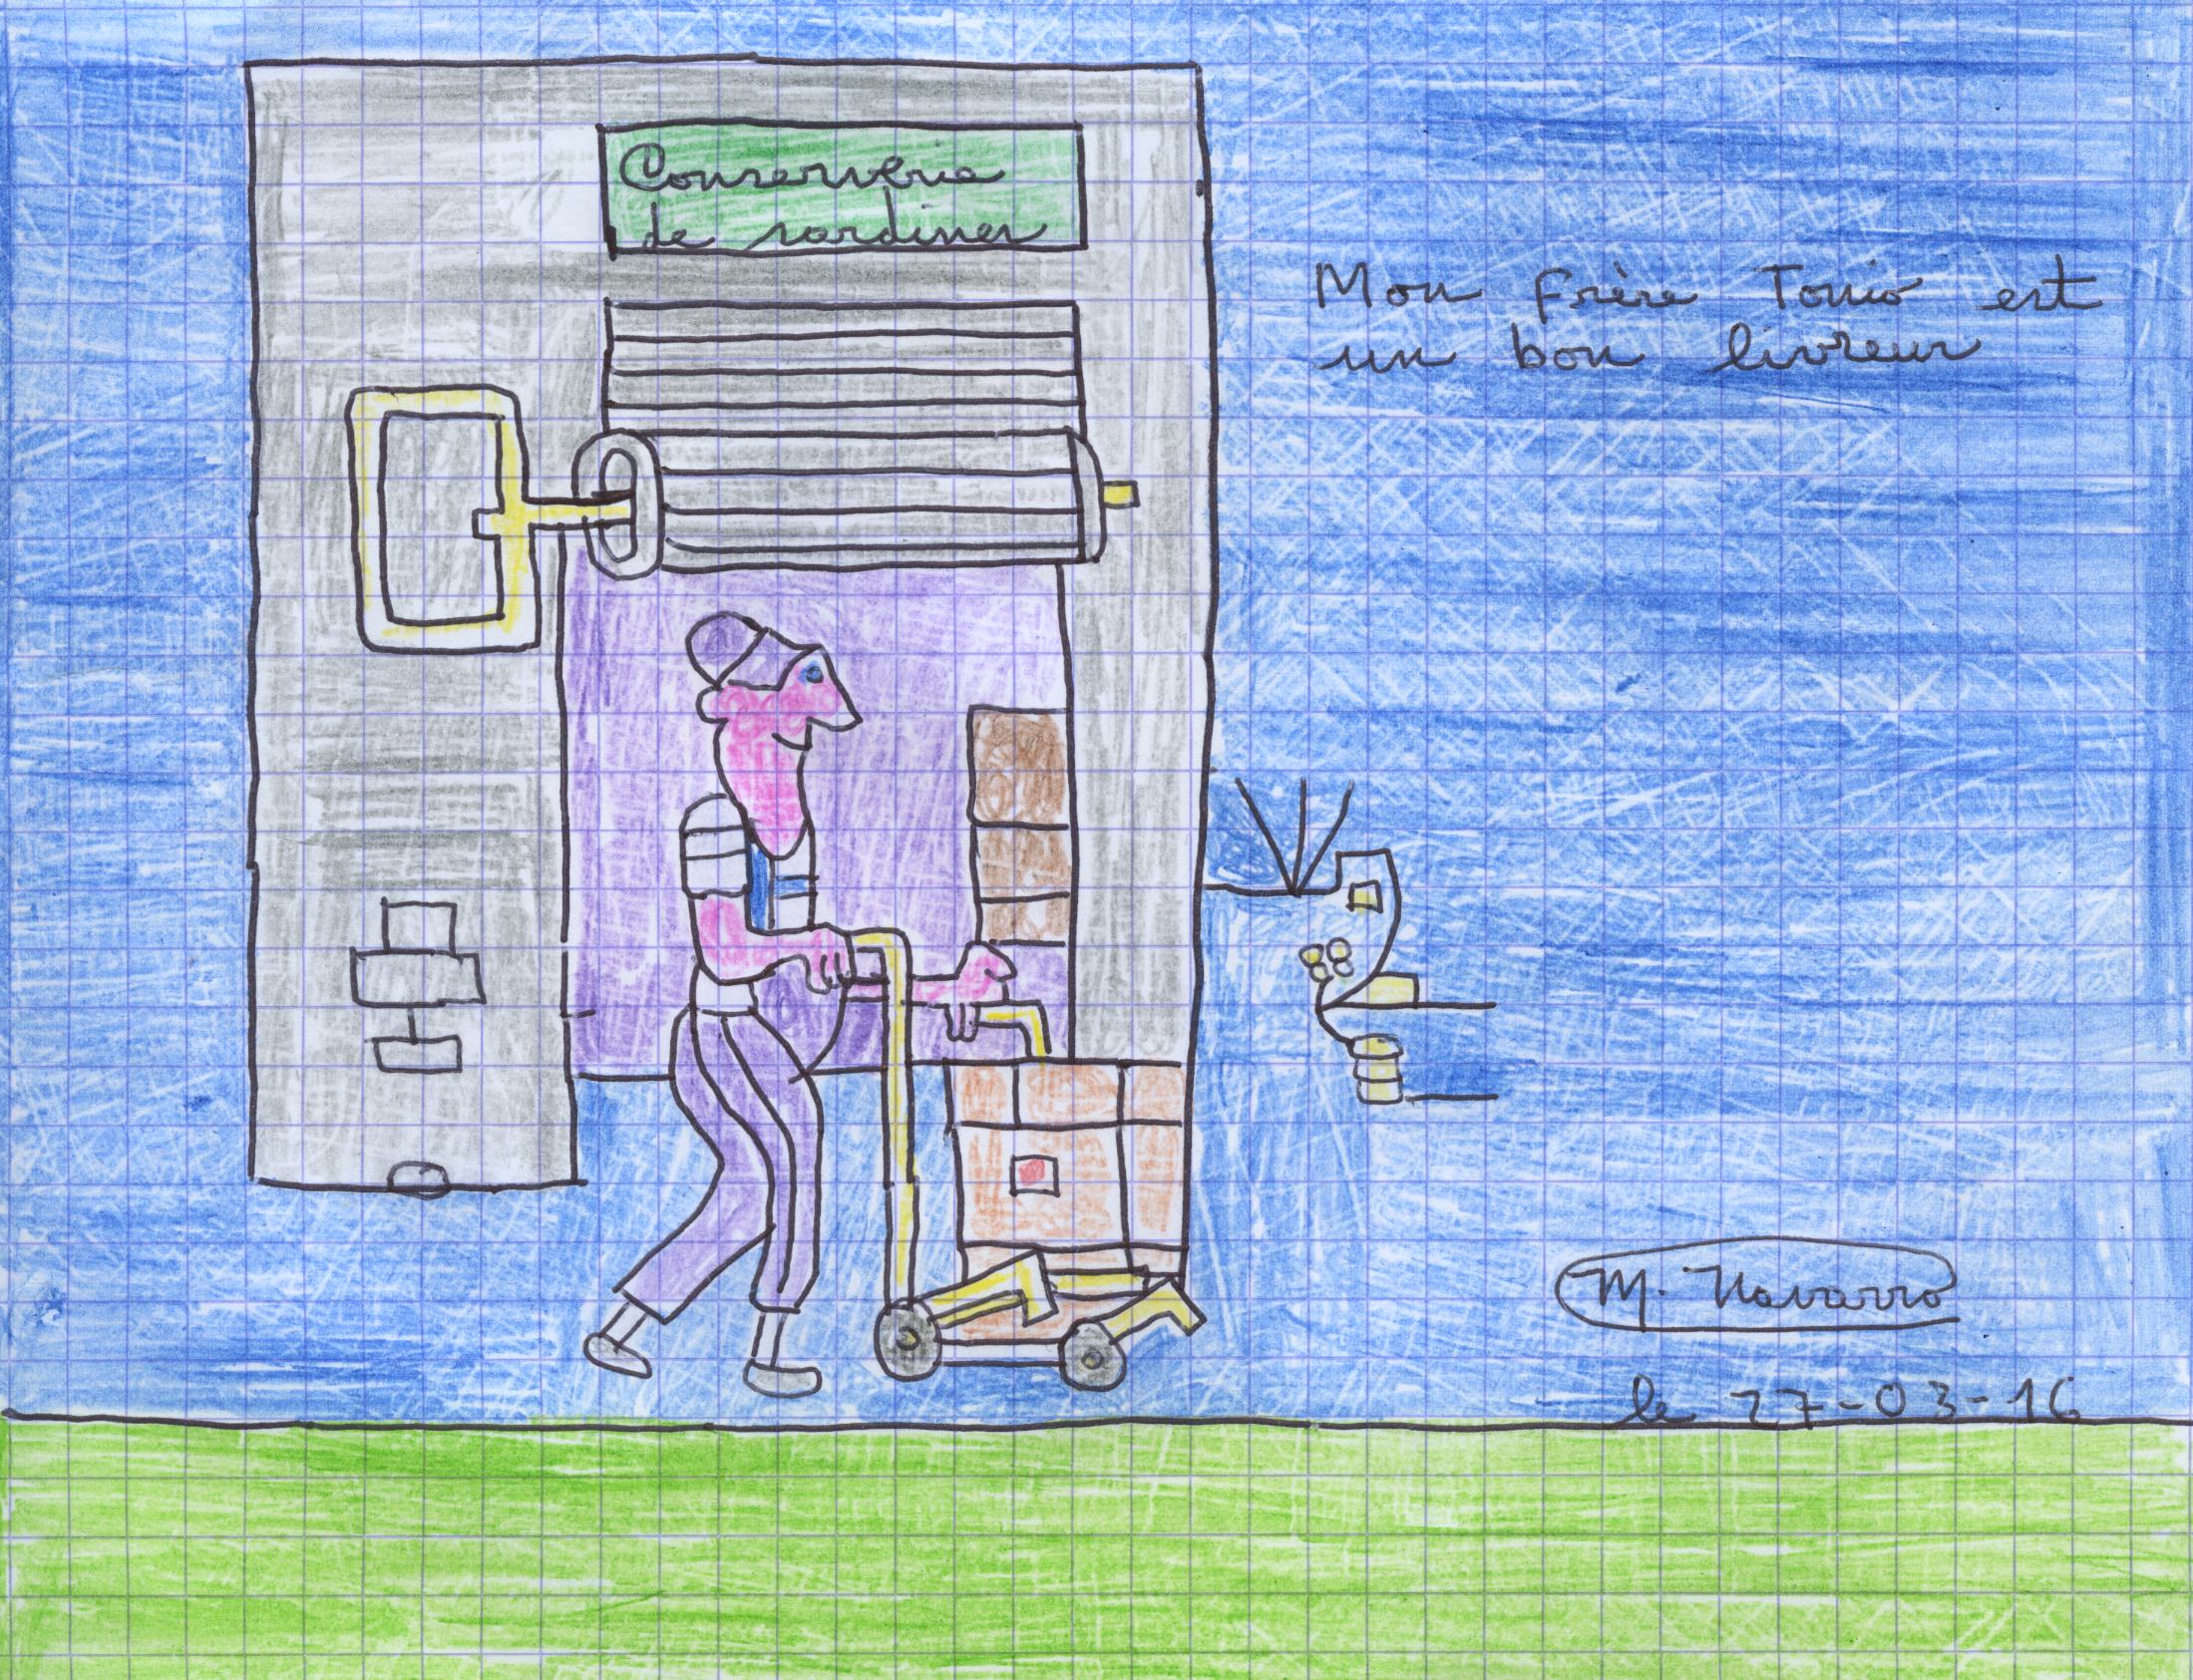 Conserverie
de sardines
Mon frère Tonio est
un bon livreur
M. Navarro
le 27-03-16